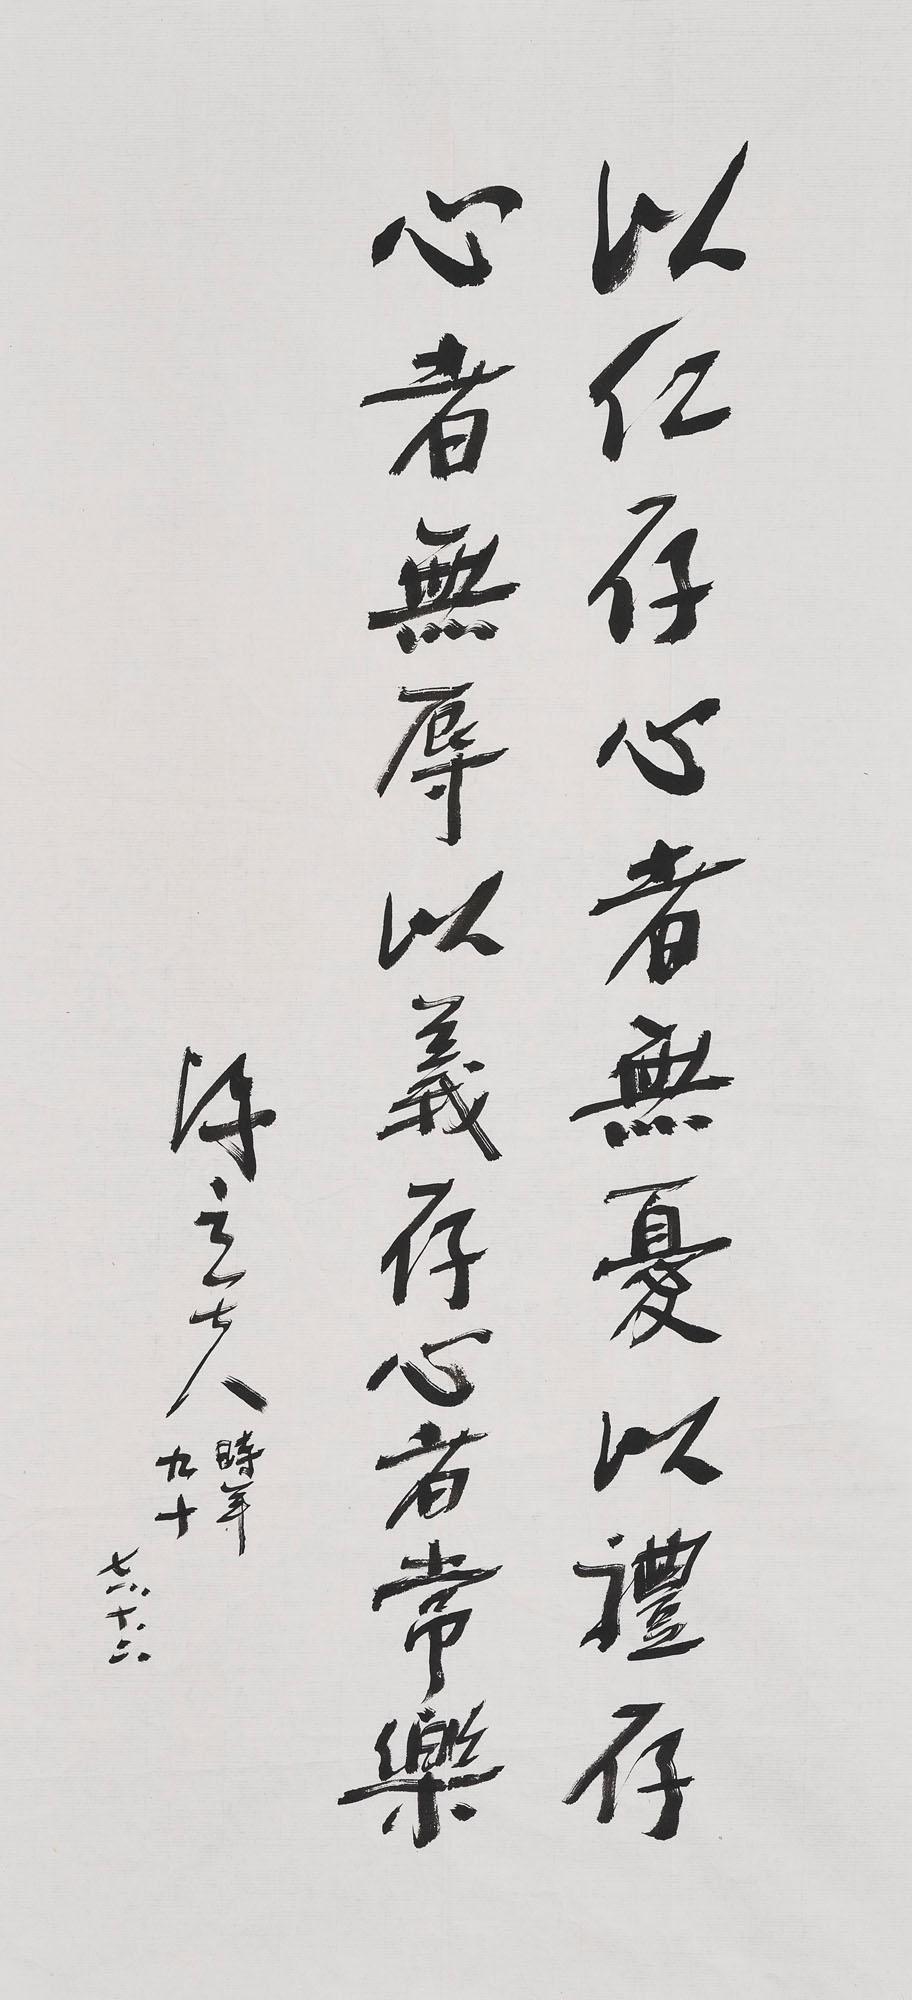 以仁存心者無憂以禮存
心者無辱以義存心者常樂
陳立夫
時年
九十
七八、十、二八